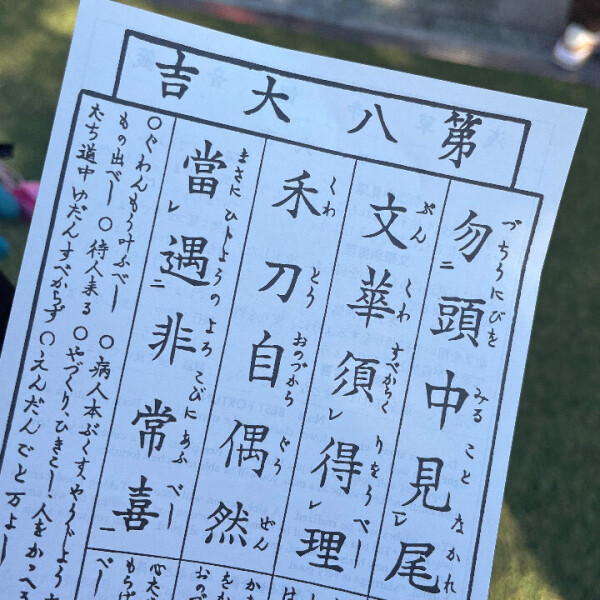 第八大吉
づちうにびを みる こと なかれ
勿頭中見尾
ぶん くわ すべからく りをうべー
文華須得理
くわ とう おのづから ぐう ぜん
禾刀自偶然
まさに ひじようの よろこびにあふべー
當遇非常喜
〇ぐわんもう叶ふべー 〇病人本ぶくす、やうじよう
もの出べー 〇待人来る 〇やづくり、ひきこー、人をかゝへる
たち道中ゆだんすべからず 〇えんだん 万よー